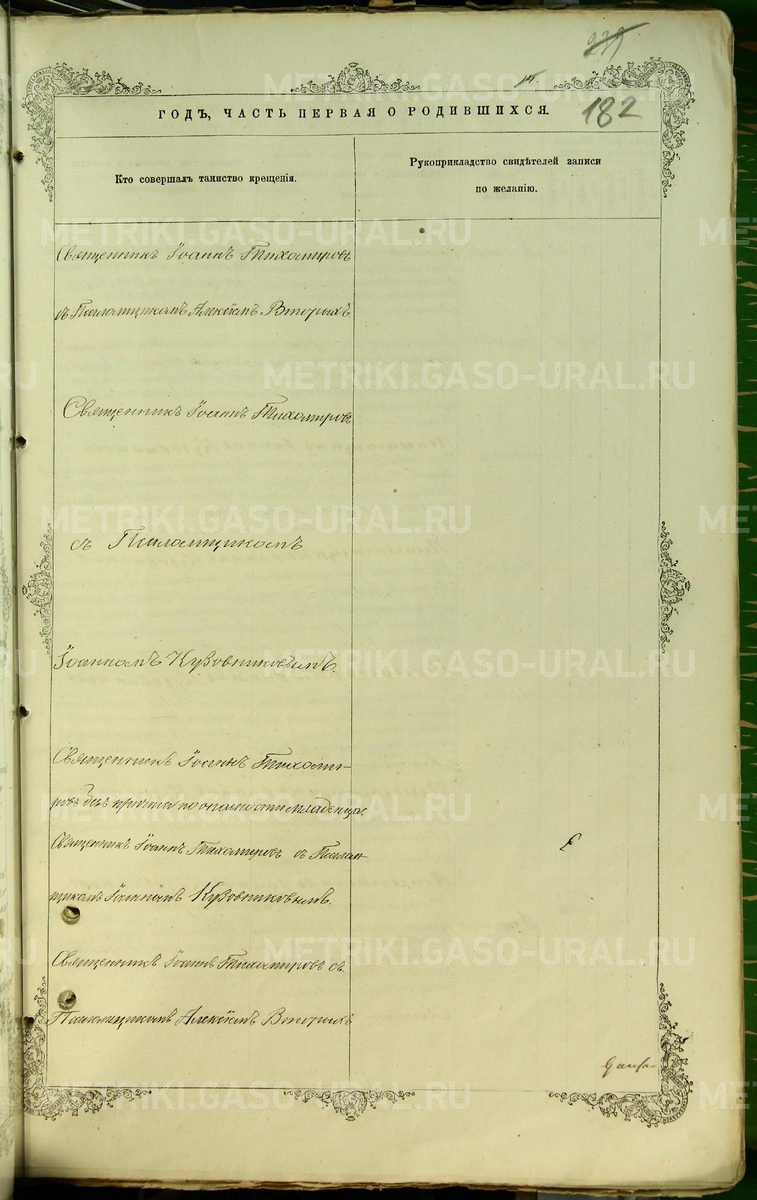 182
ГОДЪ, ЧАСТЬ ПЕРВАЯ О РОДИВШИХСЯ.
Кто совершалъ таинство крещенія.
Рукоприкладство свидѣтелей записи
по желанію.
Священникъ Іоаннъ Тихомировъ
съ Псаломщикомъ Алексѣемъ Вторыхъ
Священникъ Іоаннъ Тихомировъ
съ Псаломщикомъ
Іоанномъ Кузовниковымъ.
Священникъ Іоаннъ Тихоми-
ровъ безъ причта по опасности младенца.
Священникъ Іоаннъ Тихомировъ съ Псалом-
щикомъ Іоанномъ Кузовниковымъ.
Священникъ Іоаннъ Тихомировъ съ
Псаломщикомъ Алексѣемъ Вторыхъ
METRIKI.GASO-URAL.RU